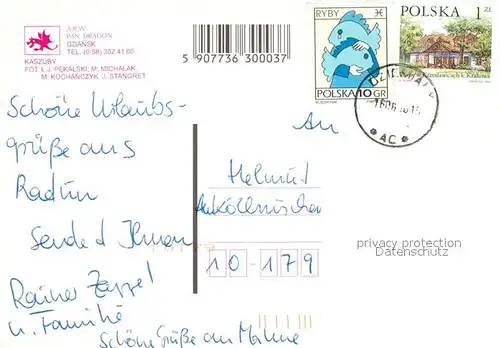 A.R.W.
PAN DRAGON
GDAŃSK
TEL. (0-58) 302 41 60
KASZUBY
FOT. L.J. PĘKALSKI; M. MICHALAK,
M. KOCHAŃCZYK, J. STANGRET
5 907736 300037
RYBY
POLSKA 10 GR
POLSKA 1 ZŁ
AC
Schöne Urlaubs-
grüße aus
Radun
sendet Ihnen
Rainer Zappel
u. Familie
Schöne Grüße an
An
Helmut
Anköllnischer
10-179
privacy protection
Datenschutz